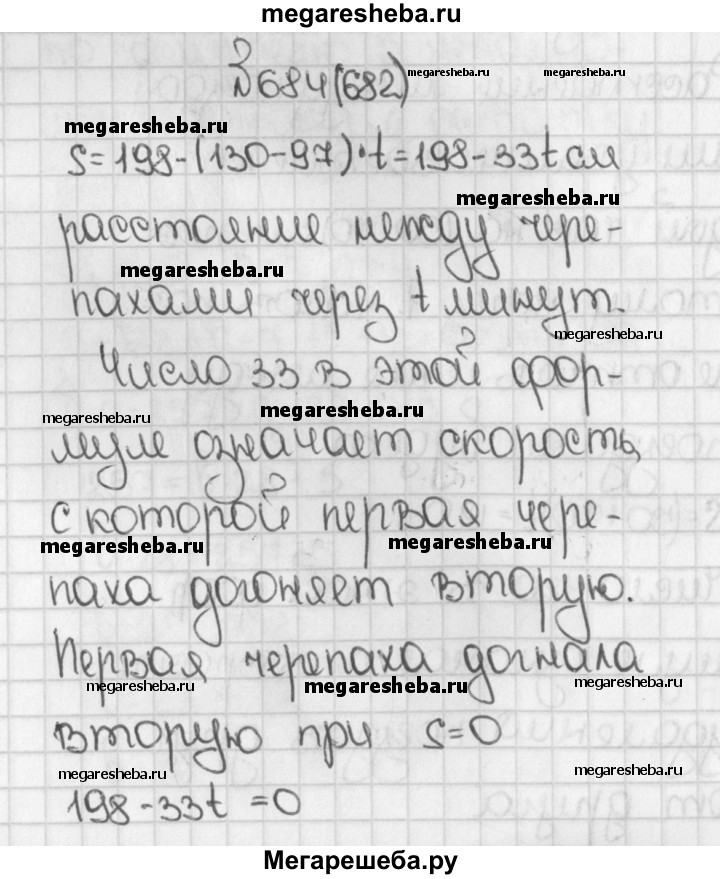 megaresheba.ru
№684(682)
megaresheba.ru
megaresheba.ru
megaresheba.ru
S=198-(130-97)·t=198-33t см
megaresheba.ru
расстояние между чере-
megaresheba.ru
пахами через t минут.
megaresheba.ru
Число 33 в этой фор-
megaresheba.ru
megaresheba.ru
муле означает скорость,
с которой первая чере-
megaresheba.ru
megaresheba.ru
паха догоняет вторую.
Первая черепаха догнала
megaresheba.ru
megaresheba.ru
megaresheba.ru
вторую при S=0
megaresheba.ru
megaresheba.ru
198-33t=0
Мегарешеба.ру